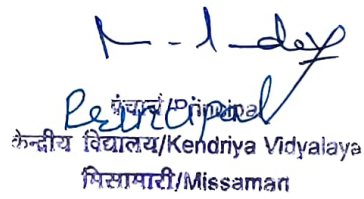 Principal
प्राचार्य/Principal
केन्द्रीय विद्यालय/Kendriya Vidyalaya
मिसामारी/Missamari